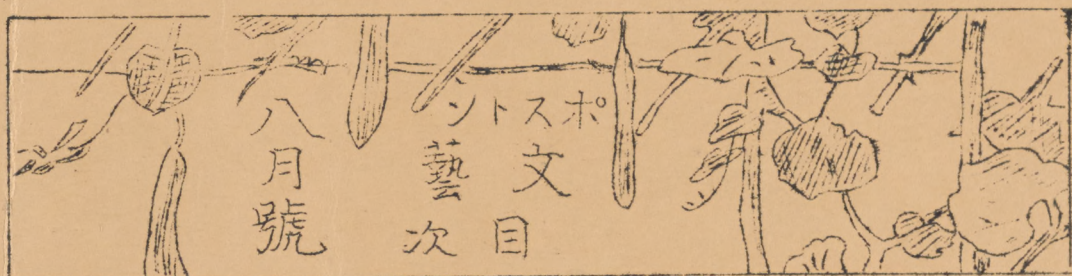 ポストン
文藝
目次
八月號